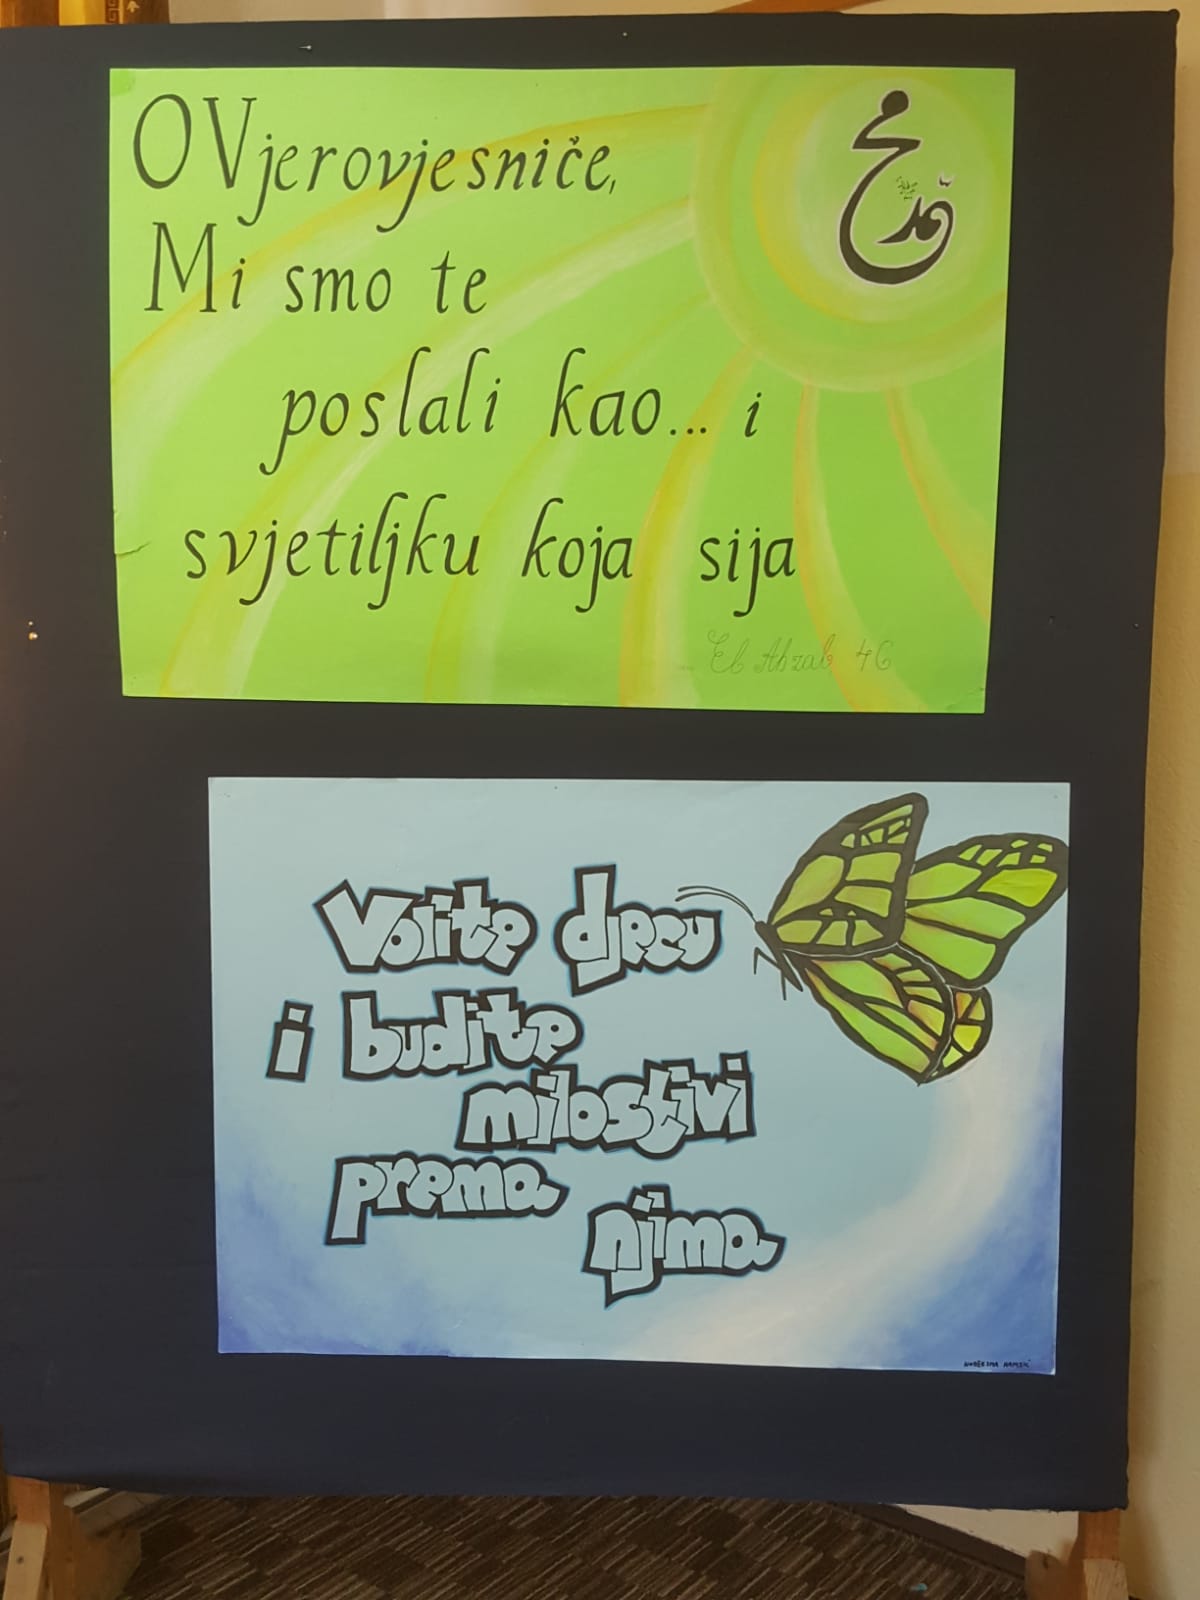 O Vjerovjesniče,
محمد
Mi smo te
poslali kao... i
svjetiljku koja sija
El Ahzab 46
Volite djecu
i budite
milostivi
prema
njima